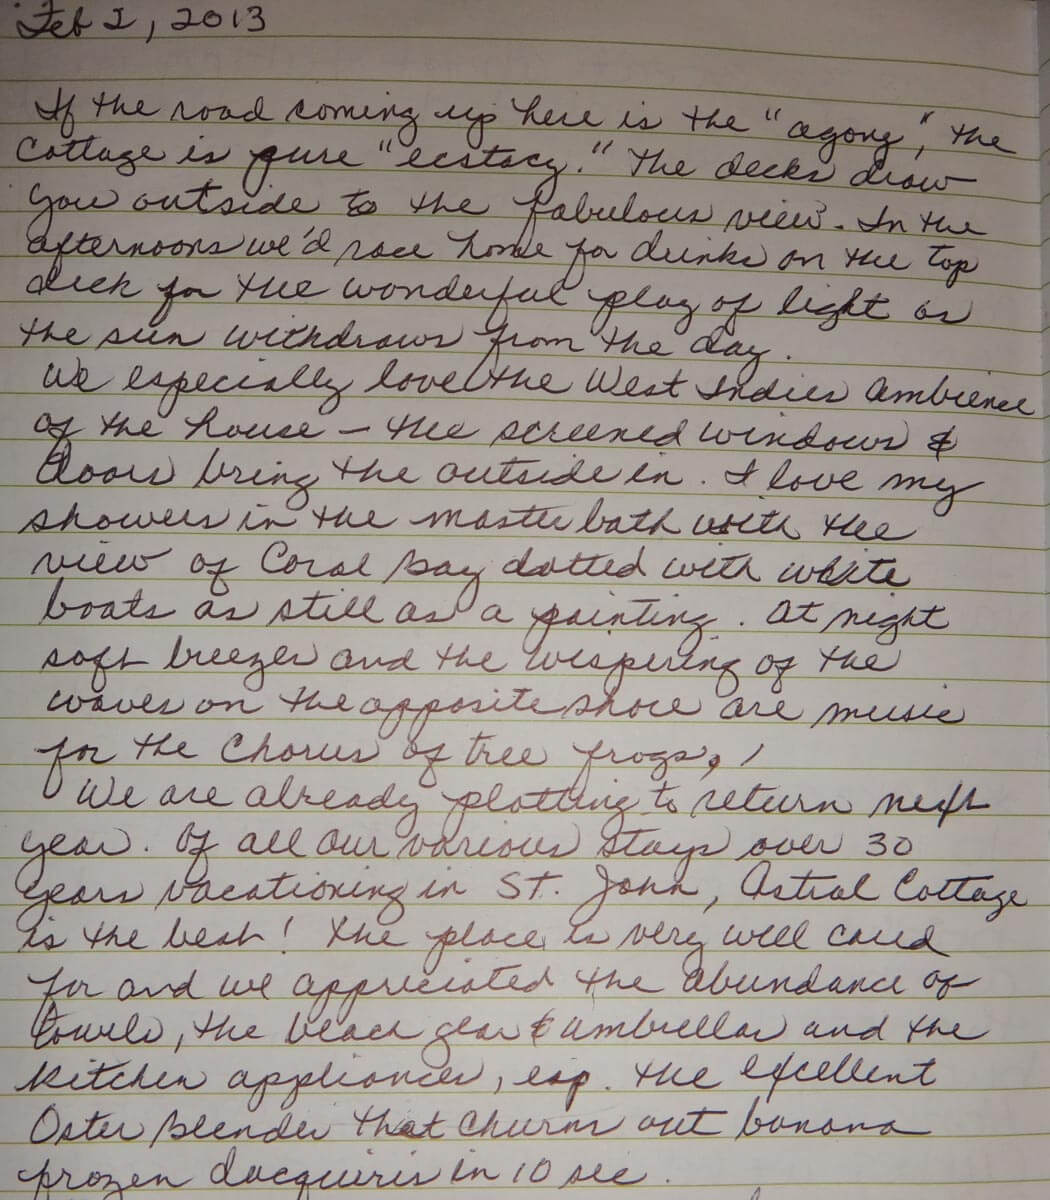 Feb 2, 2013
If the road coming up here is the "agony", the
Cottage is pure "ecstacy." The decks draw
you outside to the fabulous view. In the
afternoons we'd race home for drinks on the top
deck for the wonderful play of light as
the sun withdraws from the day.
We especially love the West Indies ambience
of the house - the screened windows &
doors bring the outside in. I love my
showers in the master bath with the
view of Coral Bay dotted with white
boats as still as a painting. At night
soft breezes and the wispering of the
waves on the opposite shore are music
for the chorus of tree frogs,
We are already plotting to return next
year. Of all our various stays over 30
years vacationing in ST. John, Astral Cottage
is the best! The place is very well cared
for and we appreciated the abundance of
towels, the beach gear & umbrellas and the
kitchen appliances, esp. the excellent
Oster Blender that churns out banana
frozen dacquiris in 10 sec.